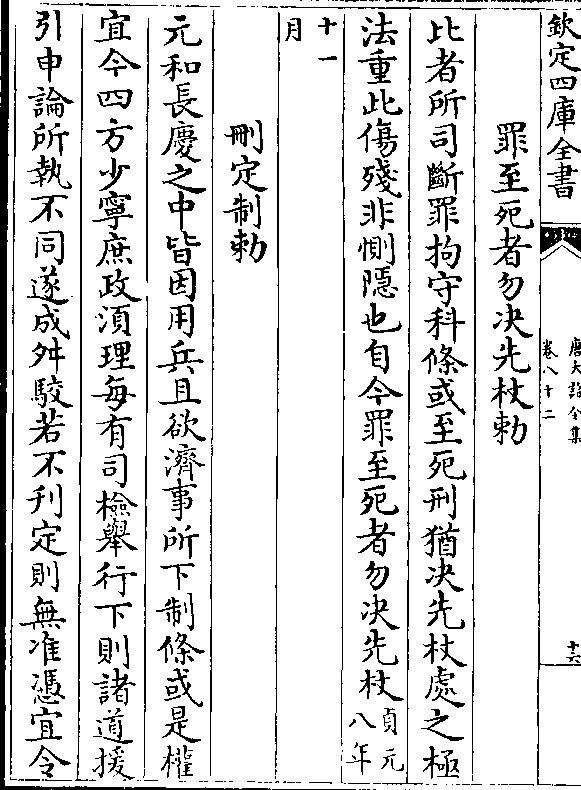 欽定四庫全書
唐大詔令集
卷八十二
十六
罪至死者勿決先杖勅
比者所司斷罪拘守科條或至死刑猶決先杖處之極
法重此傷殘非惻隱也自今罪至死者勿決先杖
貞元
八年
十一
月
刪定制勅
元和長慶之中皆因用兵且欲濟事所下制條或是權
宜今四方少寧庶政須理每有司檢舉行下則諸道援
引申論所執不同遂成舛駮若不刊定則無准憑宜令